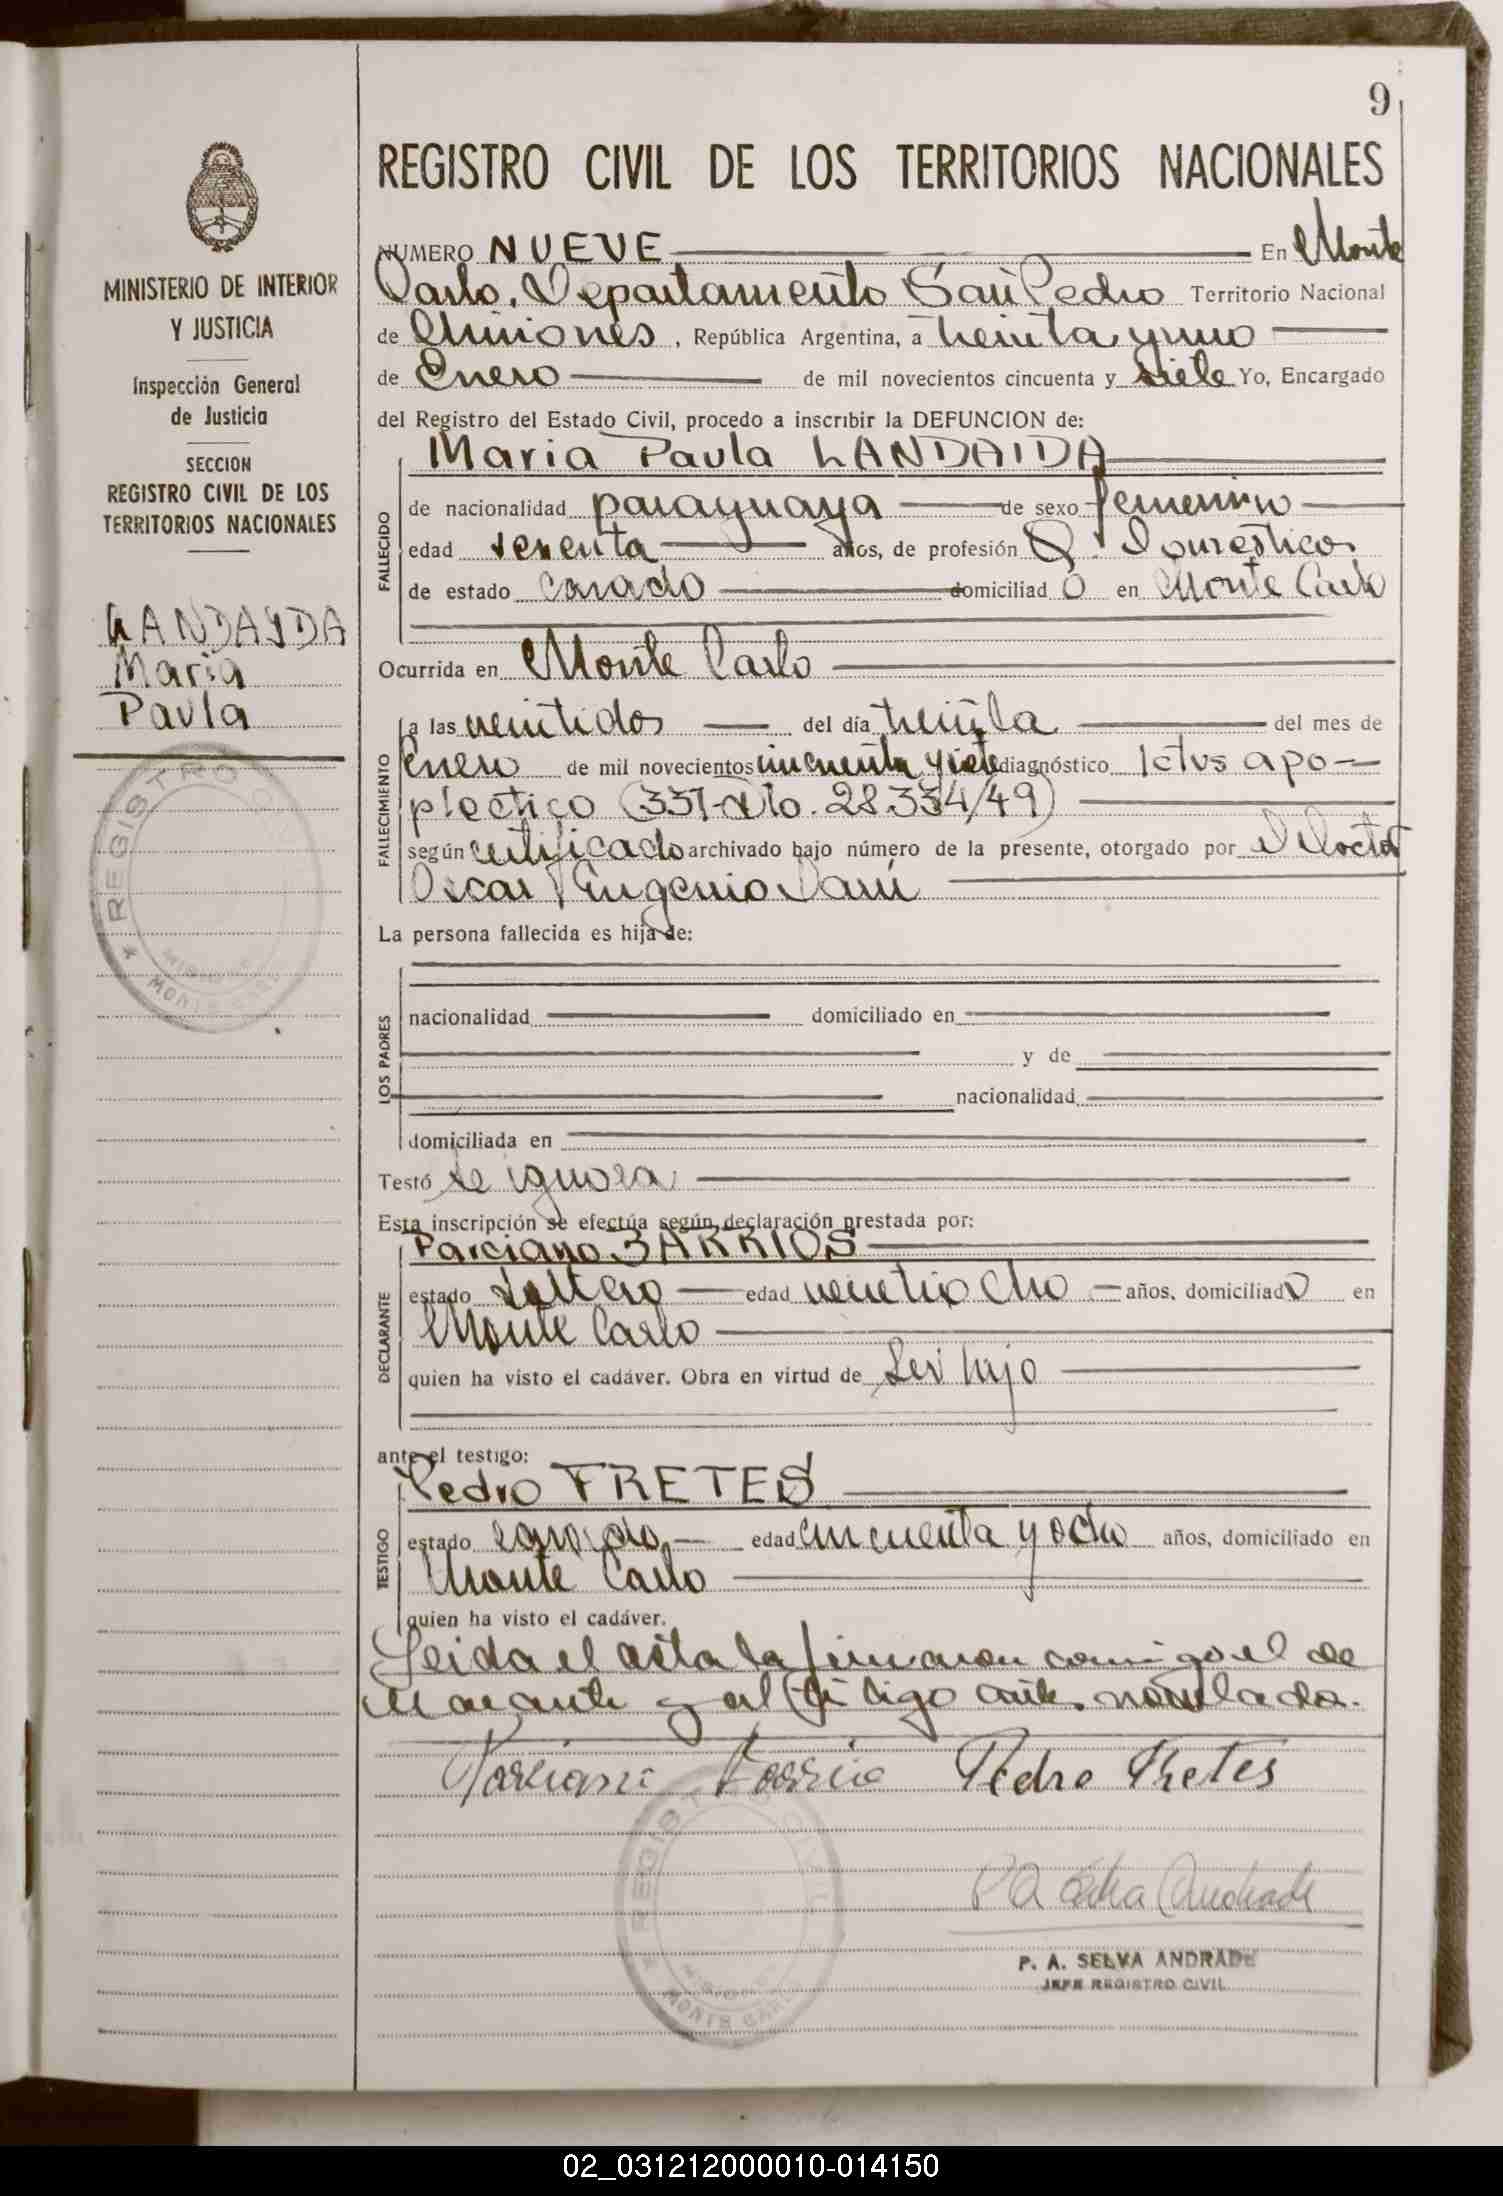 9
REGISTRO CIVIL DE LOS TERRITORIOS NACIONALES
MINISTERIO DE INTERIOR
Y JUSTICIA
Inspección General
de Justicia
SECCION
REGISTRO CIVIL DE LOS
TERRITORIOS NACIONALES
LANDAYDA
Maria
Paula
REGISTRO
MISIONES
MONTE CARLO
NUMERO NUEVE En Monte
Carlo, Departamento San Pedro Territorio Nacional
de Misiones, República Argentina, a treinta y uno
de Enero de mil novecientos cincuenta y siete Yo, Encargado
del Registro del Estado Civil, procedo a inscribir la DEFUNCION de:
Maria Paula LANDAIDA
FALLECIDO
de nacionalidad paraguaya de sexo femenino
edad sesenta años, de profesión Q. Domesticos
de estado casado domiciliad o en Monte Carlo
Ocurrida en Monte Carlo
FALLECIMIENTO
a las veintidos del día treinta del mes de
Enero de mil novecientos cincuenta y siete diagnóstico Ictus apo-
plectico (331-Dto. 28.334/49)
según certificado archivado bajo número de la presente, otorgado por el Doctor
Oscar Eugenio
La persona fallecida es hija de:
LOS PADRES
nacionalidad domiciliado en
y de
nacionalidad
domiciliada en
Testó se ignora
Esta inscripción se efectúa según declaración prestada por:
DECLARANTE
Parciano BARRIOS
estado soltero edad veintiocho años, domiciliado en
Monte Carlo
quien ha visto el cadáver. Obra en virtud de ser hijo
ante el testigo:
TESTIGO
Pedro FRETES
estado casado edad cincuenta y ocho años, domiciliado en
Monte Carlo
quien ha visto el cadáver.
Leida el acta la firmaron conmigo el de
clarante y el testigo ante nombrados.
Parciano Barrios Pedro Fretes
REGISTRO CIVIL
MISIONES
MONTE CARLO
P A Selva Andrade
P. A. SELVA ANDRADE
JEFE REGISTRO CIVIL
02_031212000010-014150